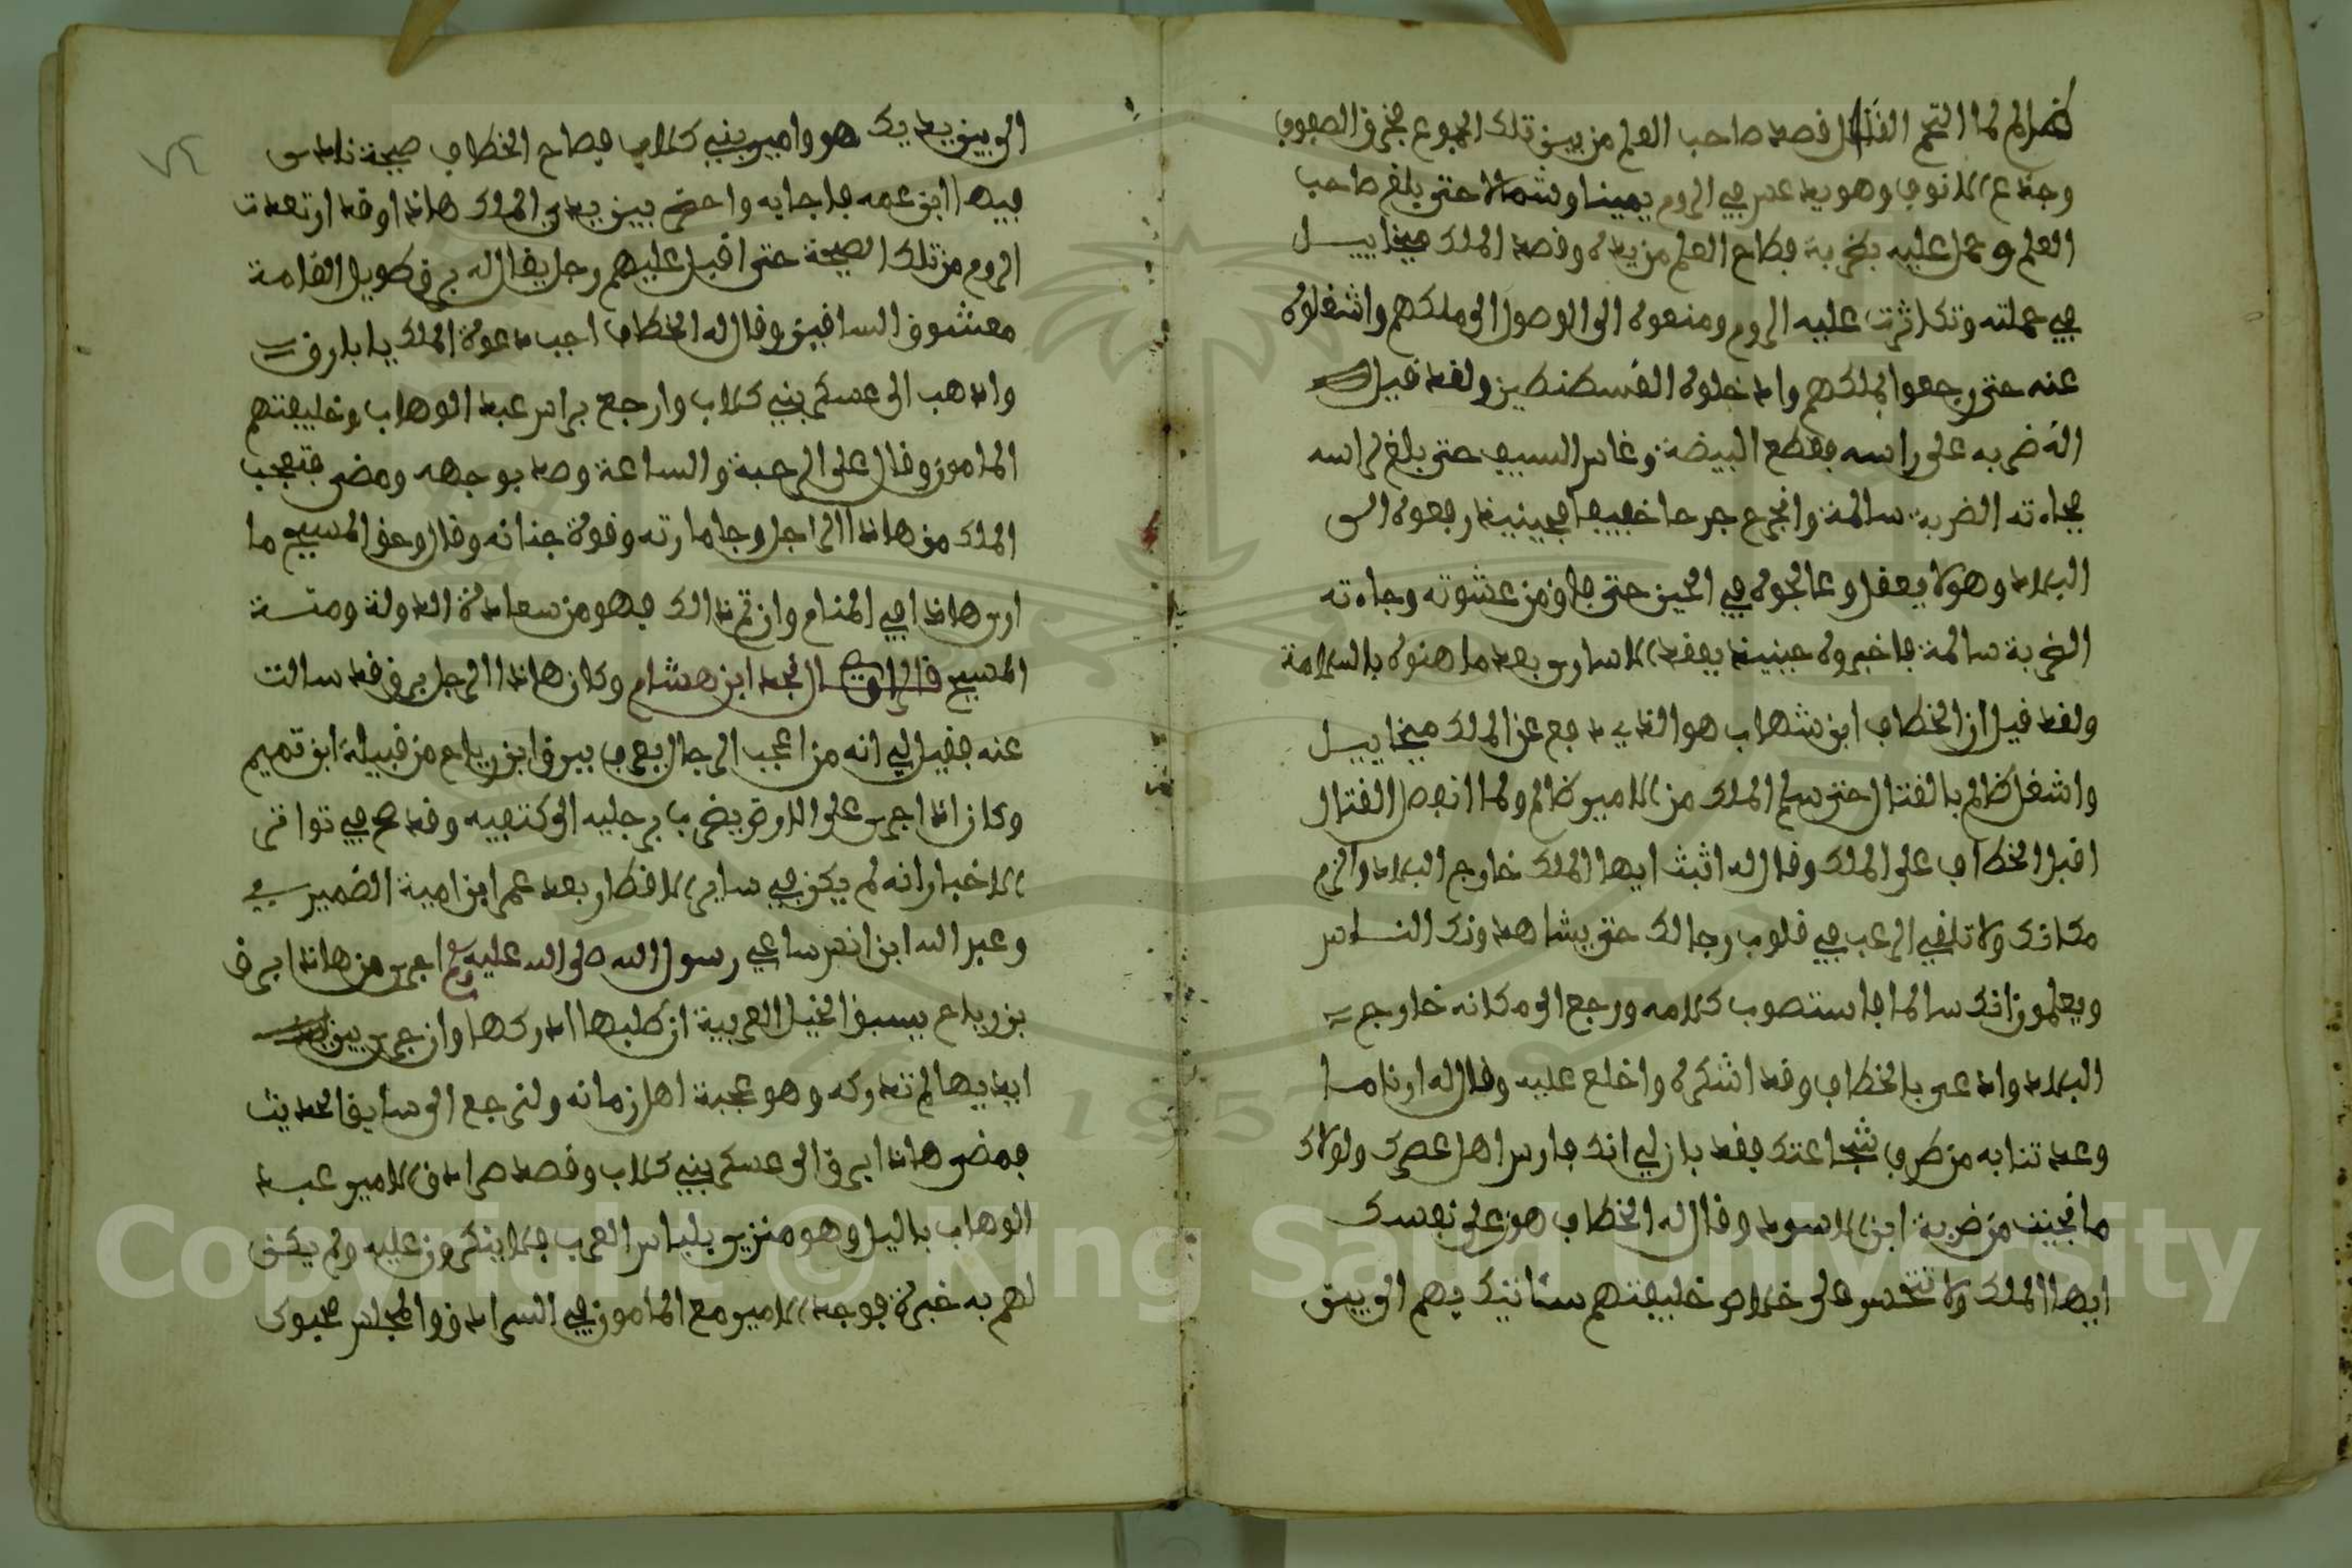 ظالم لما التحم القتال قصد صاحب العلم من بين تلك الجموع فخرق الصفوف
وجدع الانوف وهو يدعس في الروم يمينا وشمالا حتى بلغ صاحب
العلم وحمل عليه بضربة فطاح العلم من يده وقصد الملك ميخاييل
في حملته وتكاثرت عليه الروم ومنعوه الى الوصول الى ملكهم واشغلوه
عنه حتى رجعوا لملكهم وادخلوه القسطنطين ولقد قيل
انه ضربه على راسه فقطع البيضة وغاس السيف حتى بلغ لراسه
فجاءته الضربة سالمة وانجرح جرحا خفيفا فحينيذ رفعوه الى
البلاد وهو لا يعقل وعالجوه في الحين حتى فاق من غشوته وجاءته
الضربة سالمة فاخبروه حينيذ بفقد الاسارى بعد ما هنوه بالسلامة
ولقد قيل ان الخطاف ابن شهاب هو الذي دفع عن الملك ميخاييل
واشغل ظالم بالقتال حتى سلم الملك من الامير ظالم ولما انفصل القتال
اقبل الخطاف على الملك وقال له اثبت ايها الملك خارج البلاد والزم
مكانك ولا تلقي الرعب في قلوب رجالك حتى يشاهدونك الناس
ويعلمون انك سالما فاستصوب كلامه ورجع الى مكانه خارج
البلاد وادعى بالخطاف وقد اشكره واخلع عليه وقال له ارنا ما
وعدتنا به من طرف شجاعتك فقد بان لي انك فارس اهل عصرك ولولاك
ما نجيت من ضربة ابن الاسود وقال له الخطاف هون على نفسك
ايها الملك ولا تتحسر على خلاص خليفتهم سناتيك بهم الى بين
الى بين يديك هو وامير بني كلاب فصاح الخطاف صيحة نادى
فيها ابن عمه فاجابه واحضر بين يدي الملك هاذا وقد ارتعدت
الروم من تلك الصيحة حتى اقبل عليهم رجل يقال له برق طويل القامة
معشوق الساقين وقال له الخطاف اجب دعوة الملك يا بارق
واذهب الى عسكر بني كلاب وارجع براس عبد الوهاب وخليفتهم
المامون وقال على الرحبة والساعة وصد بوجهه ومضى فتعجب
الملك من هاذا الراجل وجامارته وقوة جنانه وقال وحق المسيح ما
ارى هاذا في المنام وان تم ذالك فهو من سعادة الدولة ومنة
المسيح قال الراوي نجد ابن هشام وكان هاذا الرجل برق قد سالت
عنه فقيل لي انه من اعجب الرجال يعرف ببرق ابن رياح من قبيلة ابن تميم
وكان اذا جرى على الارض يضرب برجليه الى كتفيه وقد صح في تواتر
الاخبار انه لم يكن في ساير الاقطار بعد عمر ابن امية الضميري
وعبد الله ابن انس ساعي رسول الله صلى الله عليه وسلم اجرى من هاذا برق
بن رياح يسبق الخيل العربية ان طلبها ادركها وان جرى بين
ايديها لم تدركه وهو عجبة اهل زمانه ولنرجع الى سايق الحديث
فمضى هاذا برق الى عسكر بني كلاب وقصد صرادق الامير عبد
الوهاب باليل وهو متزين بلباس العرب فلا ينكرون عليه ولم يكن
لهم به خبرة فوجد الامير مع المامون في السرادق والمجلس محبوك